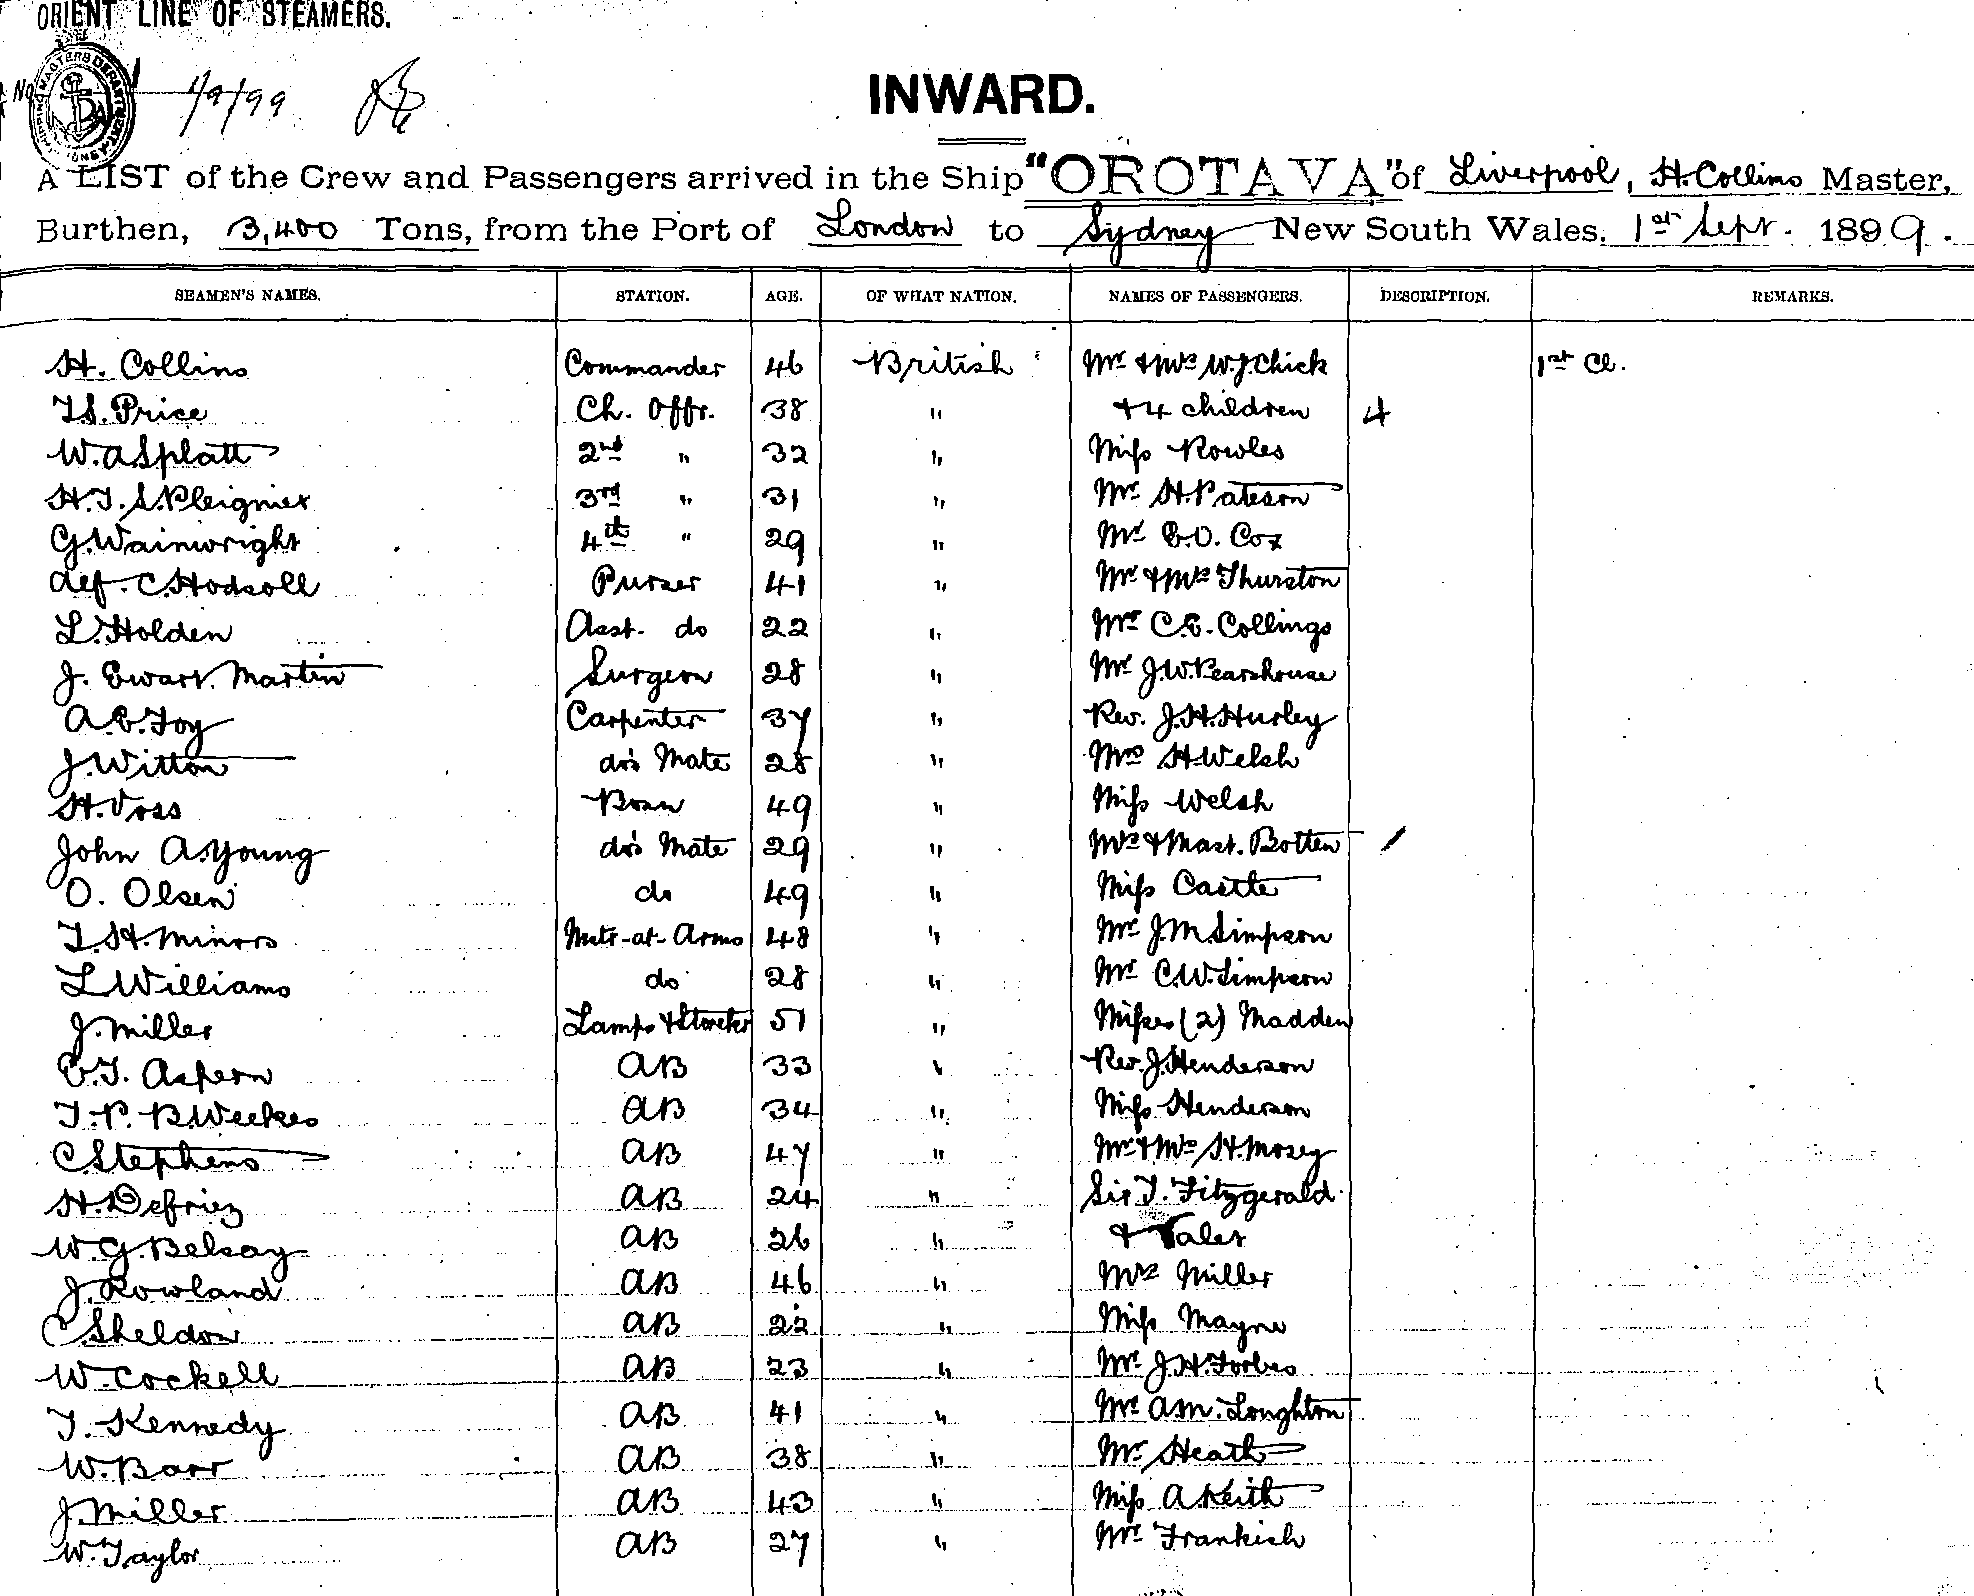 ORIENT LINE OF STEAMERS.
No 1/9/99
INWARD.
A LIST of the Crew and Passengers arrived in the Ship "OROTAVA" of Liverpool, H. Collins Master,
Burthen, 3,400 Tons, from the Port of London to Sydney New South Wales, 1st Sept. 1899.
SEAMEN'S NAMES. STATION. AGE. OF WHAT NATION. NAMES OF PASSENGERS. DESCRIPTION. REMARKS.
H. Collins Commander 46 British Mr & Mrs W.J. Chick 1st Cl.
T.S. Price Ch. Offr. 38 " + 4 children 4
W.A. Splatt 2nd " 32 " Miss Rowles
H.T.S. Pleignier 3rd " 31 " Mr H. Pateson
G. Wainwright 4th " 29 " Mr E.O. Cox
Alf. C. Hodsoll Purser 41 " Mr & Mrs Thurston
L. Holden Asst. do 22 " Mr C.E. Collings
J. Ewart Martin Surgeon 28 " Mr J.W. Pearshouse
A.E. Foy Carpenter 37 " Rev. J.H. Hurley
J. Witton do's Mate 28 " Mrs H. Welsh
H. Voss Bosn 49 " Miss Welsh
John A. Young do's Mate 29 " Mrs & Mast. Botten 1
O. Olsen do 49 " Miss Castle
T.H. Minors Mstr-at-Arms 48 " Mr J.M. Simpson
L. Williams do 28 " Mr C.W. Simpson
J. Miller Lamps & Storekr 51 " Misses (2) Madden
E.T. Aspern AB 33 " Rev. J. Henderson
T.P. B. Weekes AB 34 " Miss Henderson
C. Stephens AB 47 " Mr & Mrs H. Mosey
H. Defriez AB 24 " Sir T. Fitzgerald
W.G. Belsay AB 26 " & Valet
J. Rowland AB 46 " Mrs Miller
C. Sheldon AB 22 " Miss Mayne
W. Cockell AB 23 " Mr J.H. Forbes
T. Kennedy AB 41 " Mr A.M. Loughton
W. Barr AB 38 " Mr Heath
J. Miller AB 43 " Miss A Keith
W. Taylor AB 27 " Mr Frankish